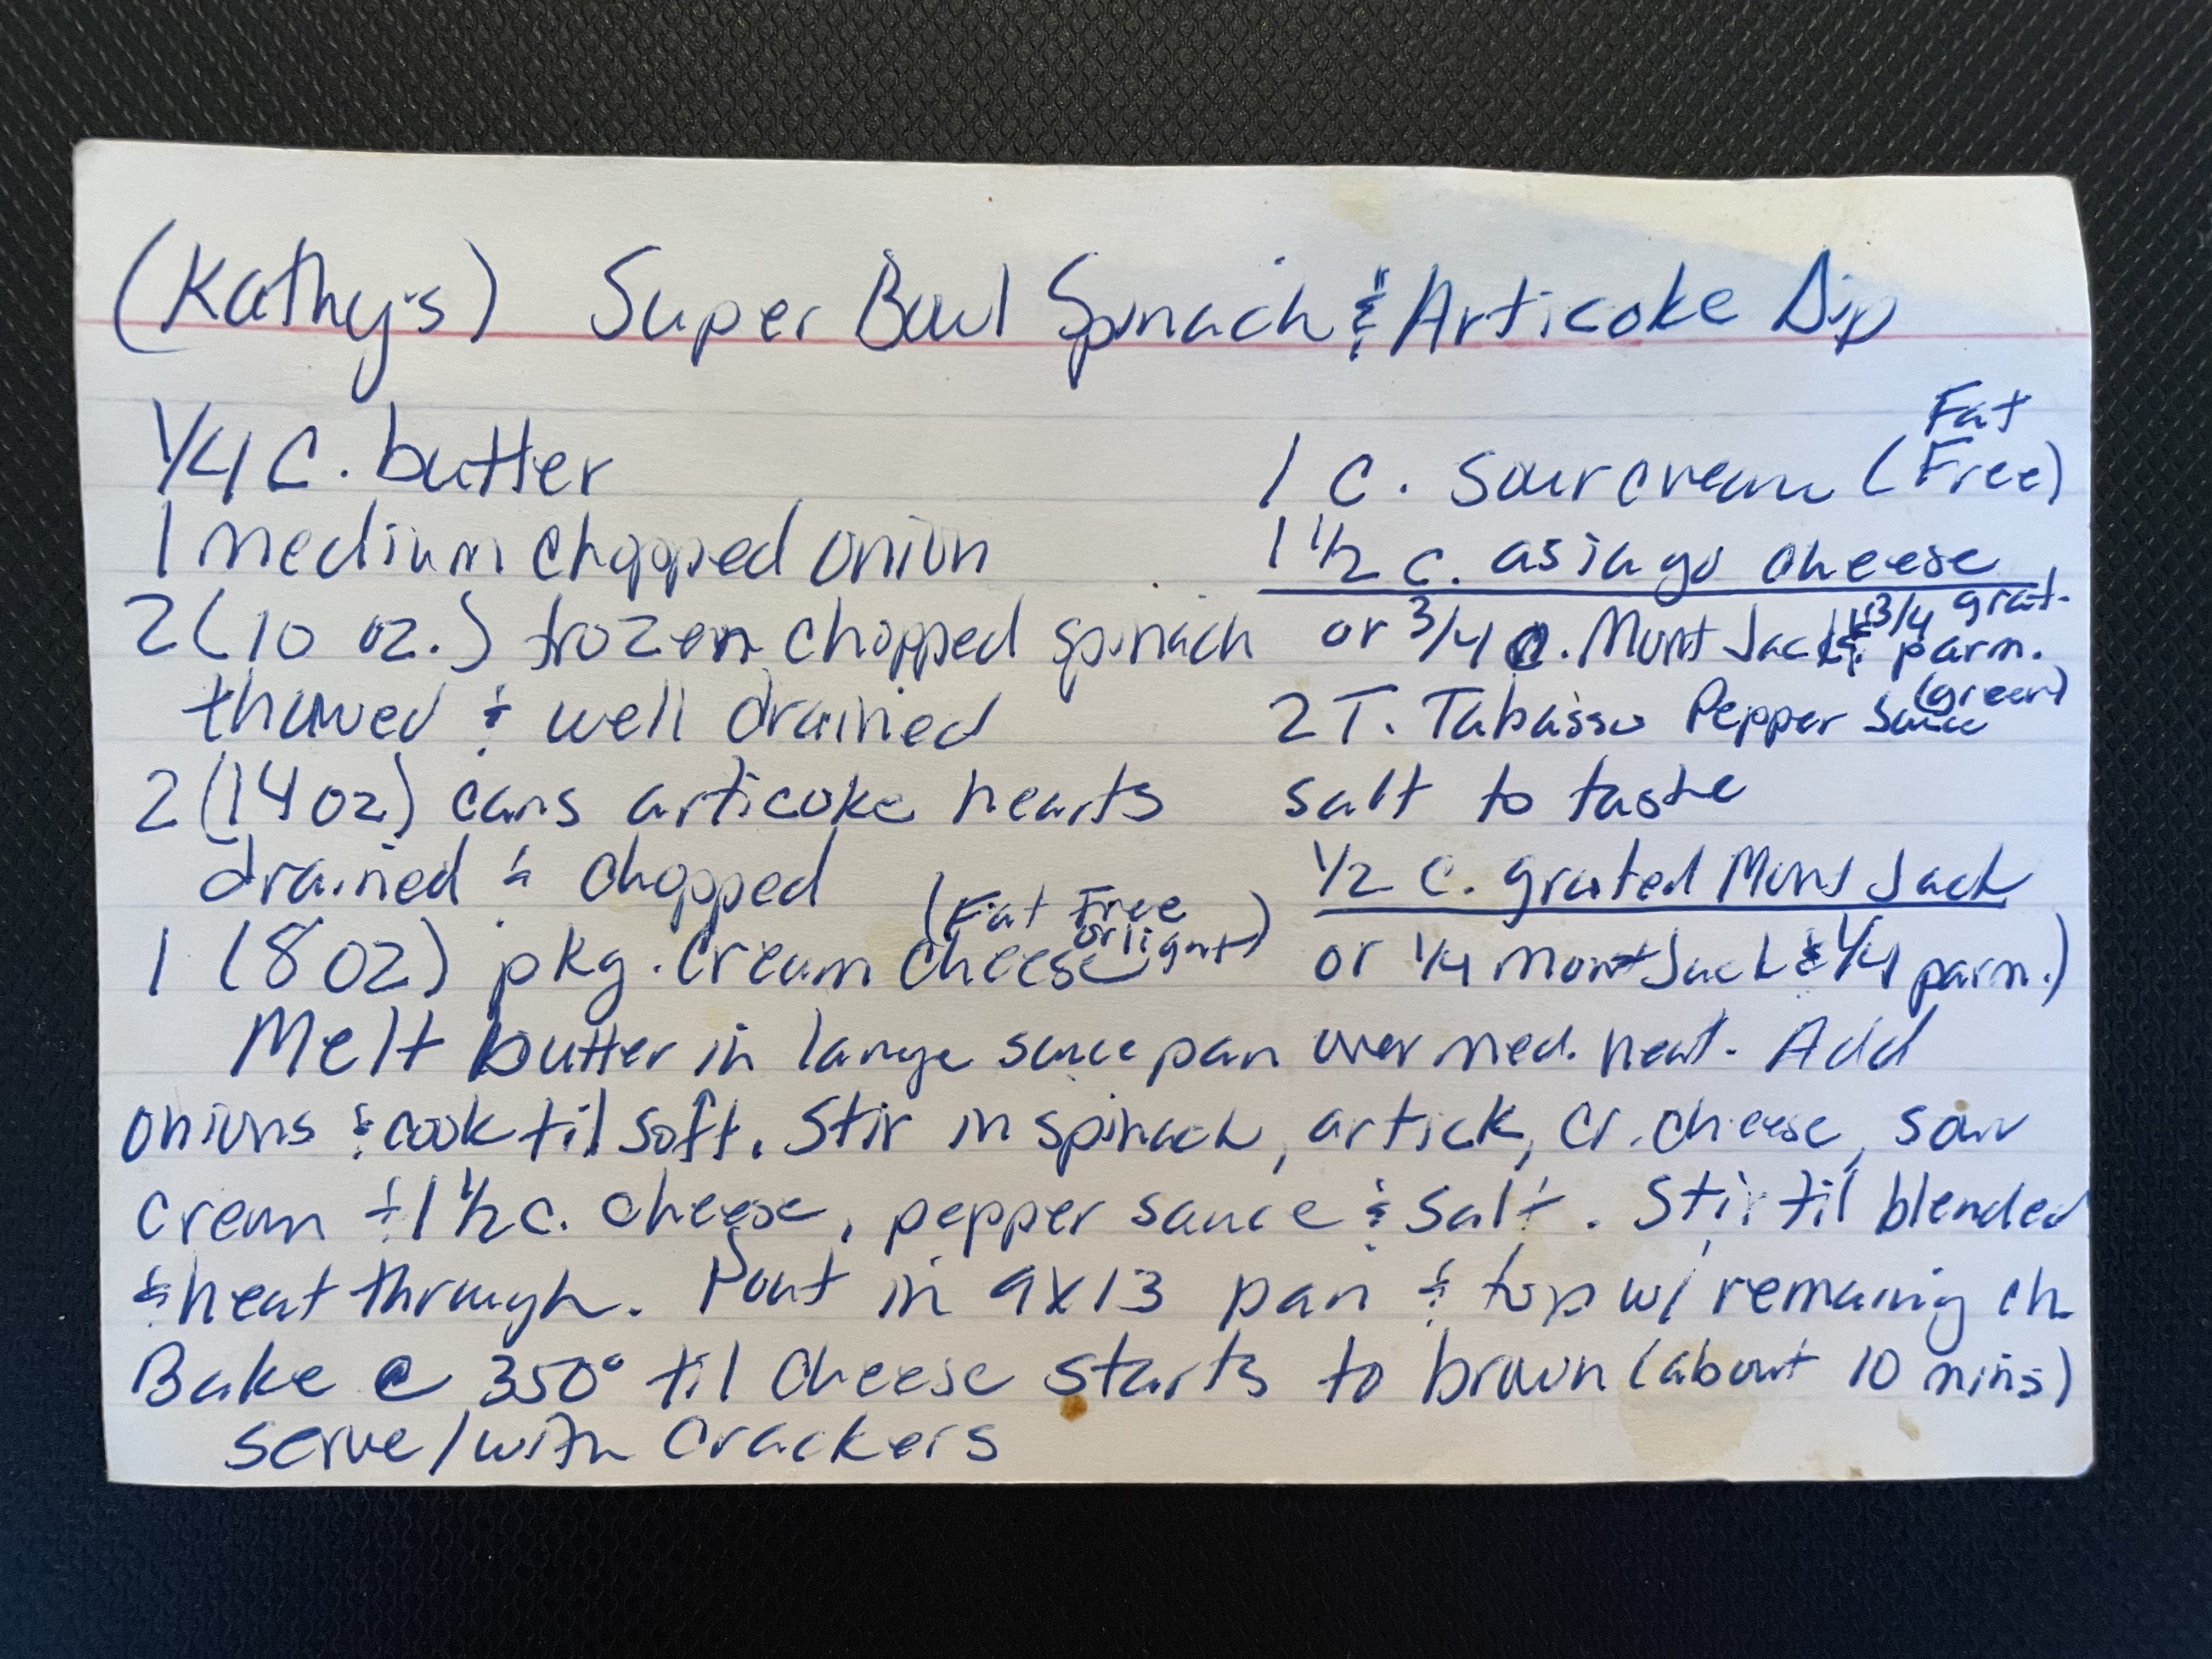 (Kathy's) Super Bowl Spinach & Articoke Dip
1/4 C. butter
1 medium chopped onion
2 (10 oz.) frozen chopped spinach
thawed & well drained
2 (14 oz) cans articoke hearts
drained & chopped
1 (8 oz) pkg. cream cheese (Fat Free or light)
1 c. sour cream (Fat Free)
1 1/2 c. asiago cheese
or 3/4 c. Mont Jack & 3/4 grat. parm.
2 T. Tabasso Pepper Sauce (green)
salt to taste
1/2 c. grated Mont Jack
or 1/4 Mont Jack & 1/4 parm.)
Melt butter in large sauce pan over med. heat. Add
onions & cook til soft. Stir in spinach, artick, cr. cheese, sour
cream + 1 1/2 c. cheese, pepper sauce & salt. Stir til blended
& heat through. Pour in 9x13 pan & top w/ remaining ch
Bake @ 350° til cheese starts to brown (about 10 mins)
serve/with crackers